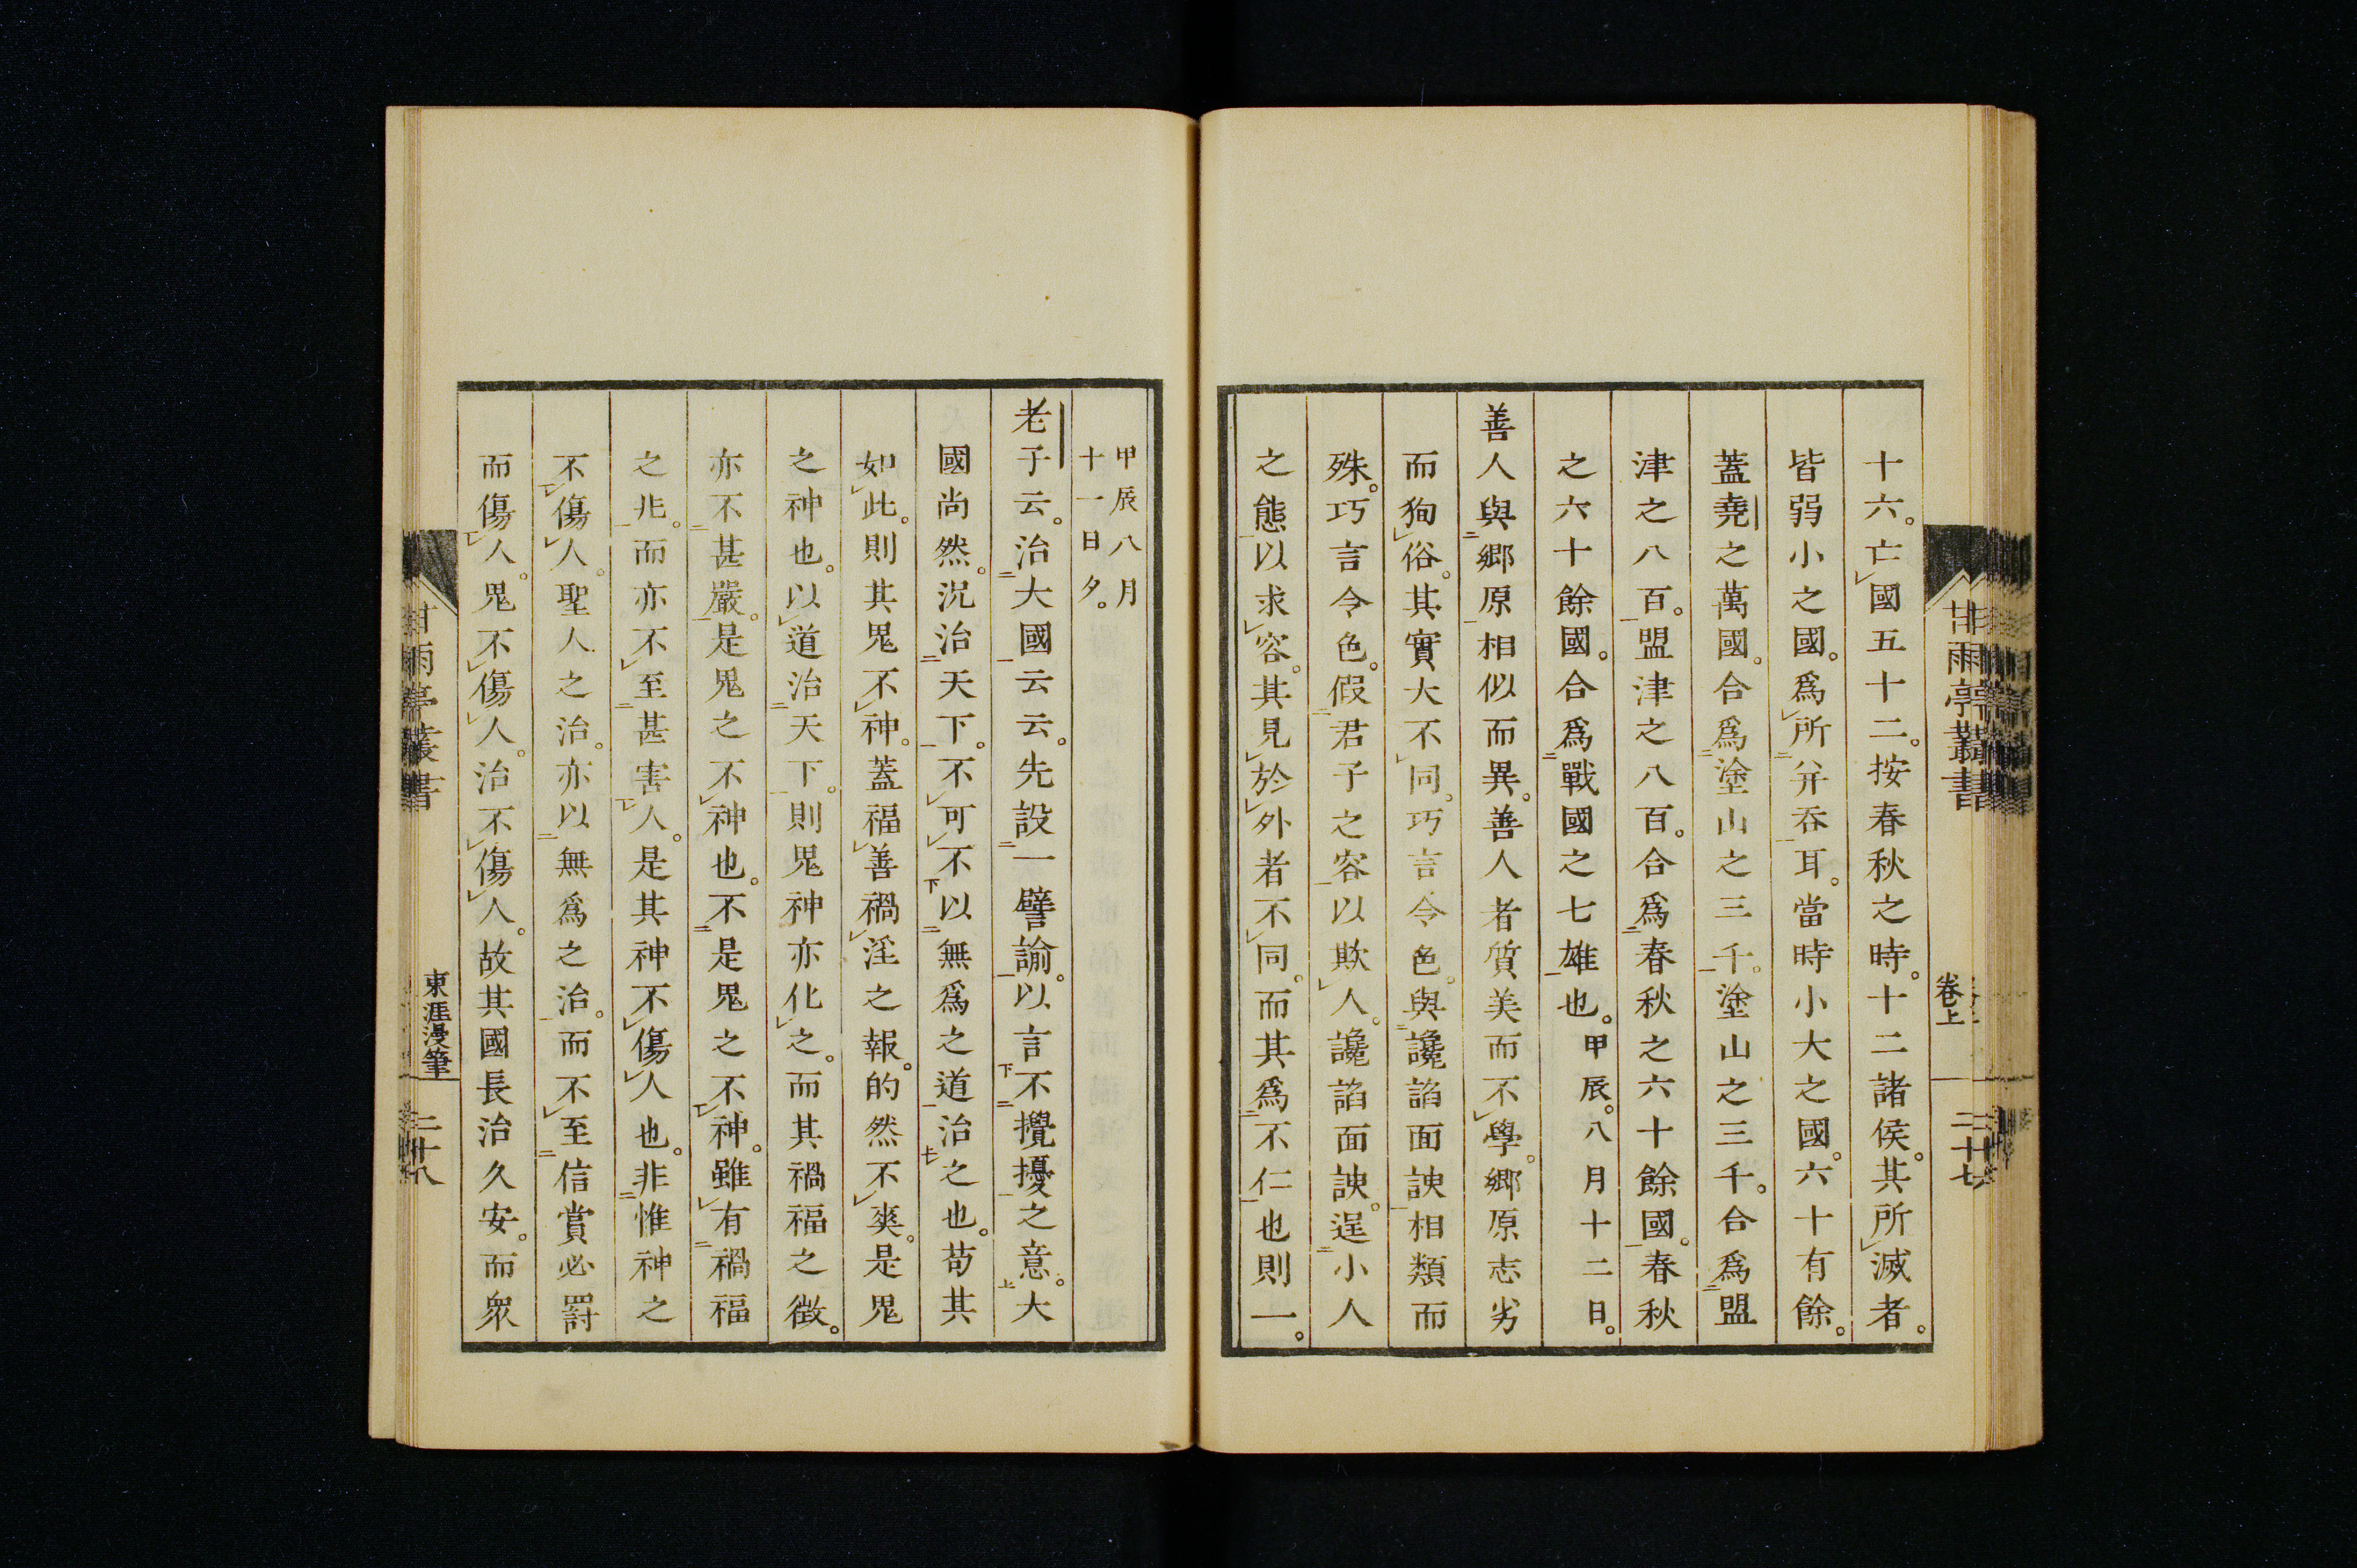 甘雨亭叢書
卷上
二十七
十六。亡國五十二。按春秋之時。十二諸侯。其所滅者。
皆弱小之國。爲所并吞耳。當時小大之國。六十有餘。
蓋堯之萬國。合爲塗山之三千。塗山之三千。合爲盟
津之八百。盟津之八百。合爲春秋之六十餘國。春秋
之六十餘國。合爲戰國之七雄也。甲辰。八月十二日。
善人與鄉原相似而異。善人者質美而不學。鄉原志劣
而狥俗。其實大不同。巧言令色。與讒諂面諛相類而
殊。巧言令色。假君子之容以欺人。讒諂面諛。逞小人
之態以求容。其見於外者不同。而其爲不仁也則一。
甲辰八月
十一日夕。
老子云。治大國云云。先設一譬諭。以言不攪擾之意。大
國尚然。況治天下。不可不以無爲之道治之也。苟其
如此。則其鬼不神。蓋福善禍淫之報。的然不爽。是鬼
之神也。以道治天下。則鬼神亦化之。而其禍福之徵。
亦不甚嚴。是鬼之不神也。不是鬼之不神。雖有禍福
之非。而亦不至甚害人。是其神不傷人也。非惟神之
不傷人。聖人之治。亦以無爲之治。而不至信賞必罰
而傷人。鬼不傷人。治不傷人。故其國長治久安。而衆
甘雨亭叢書
東涯漫筆
二十八